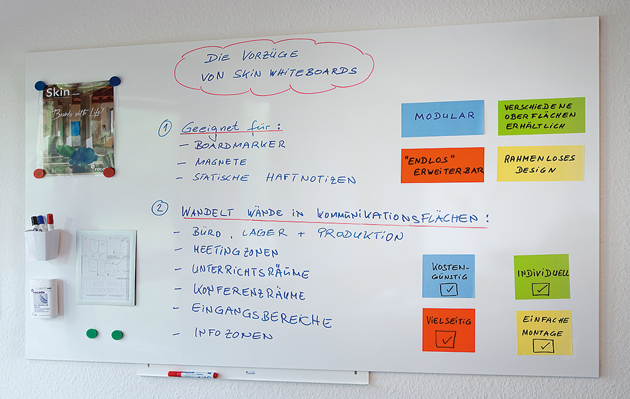 DIE VORZÜGE
VON SKIN WHITEBOARDS
Skin
Boards with Life!
① Geeignet für:
– BOARDMARKER
– MAGNETE
– STATISCHE HAFTNOTIZEN
② WANDELT WÄNDE IN KOMMUNIKATIONSFLÄCHEN:
– BÜRO, LAGER + PRODUKTION
– MEETINGZONEN
– UNTERRICHTSRÄUME
– KONFERENZRÄUME
– EINGANGSBEREICHE
– INFOZONEN
MODULAR
VERSCHIEDENE
OBERFLÄCHEN
ERHÄLTLICH
"ENDLOS"
ERWEITERBAR
RAHMENLOSES
DESIGN
KOSTEN-
GÜNSTIG
INDIVIDUELL
VIELSEITIG
EINFACHE
MONTAGE